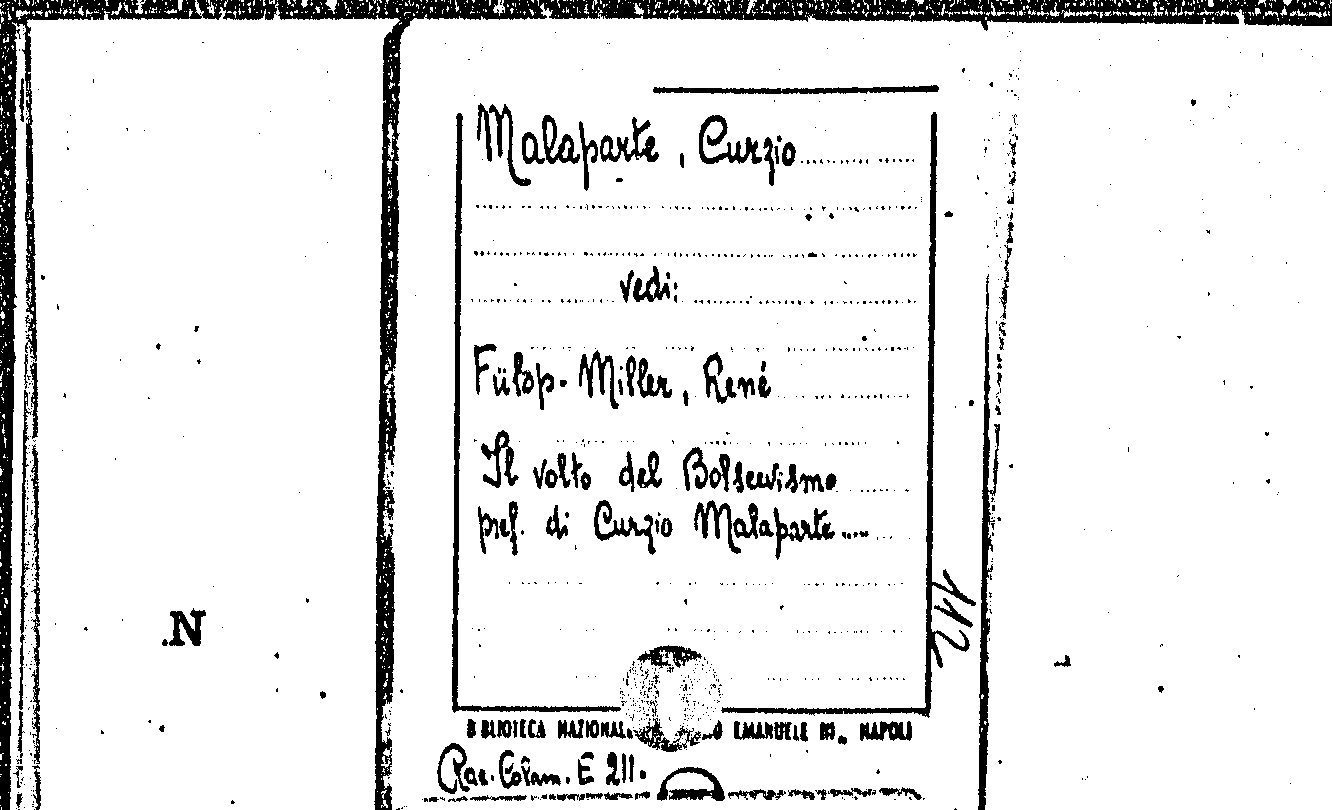 Malaparte, Curzio
vedi:
Fülop-Miller, René
Il volto del Bolscevismo
pref. di Curzio Malaparte....
112
.N
BIBLIOTECA NAZIONAL EMANUELE III., NAPOLI
Rac. Colam. E 211.